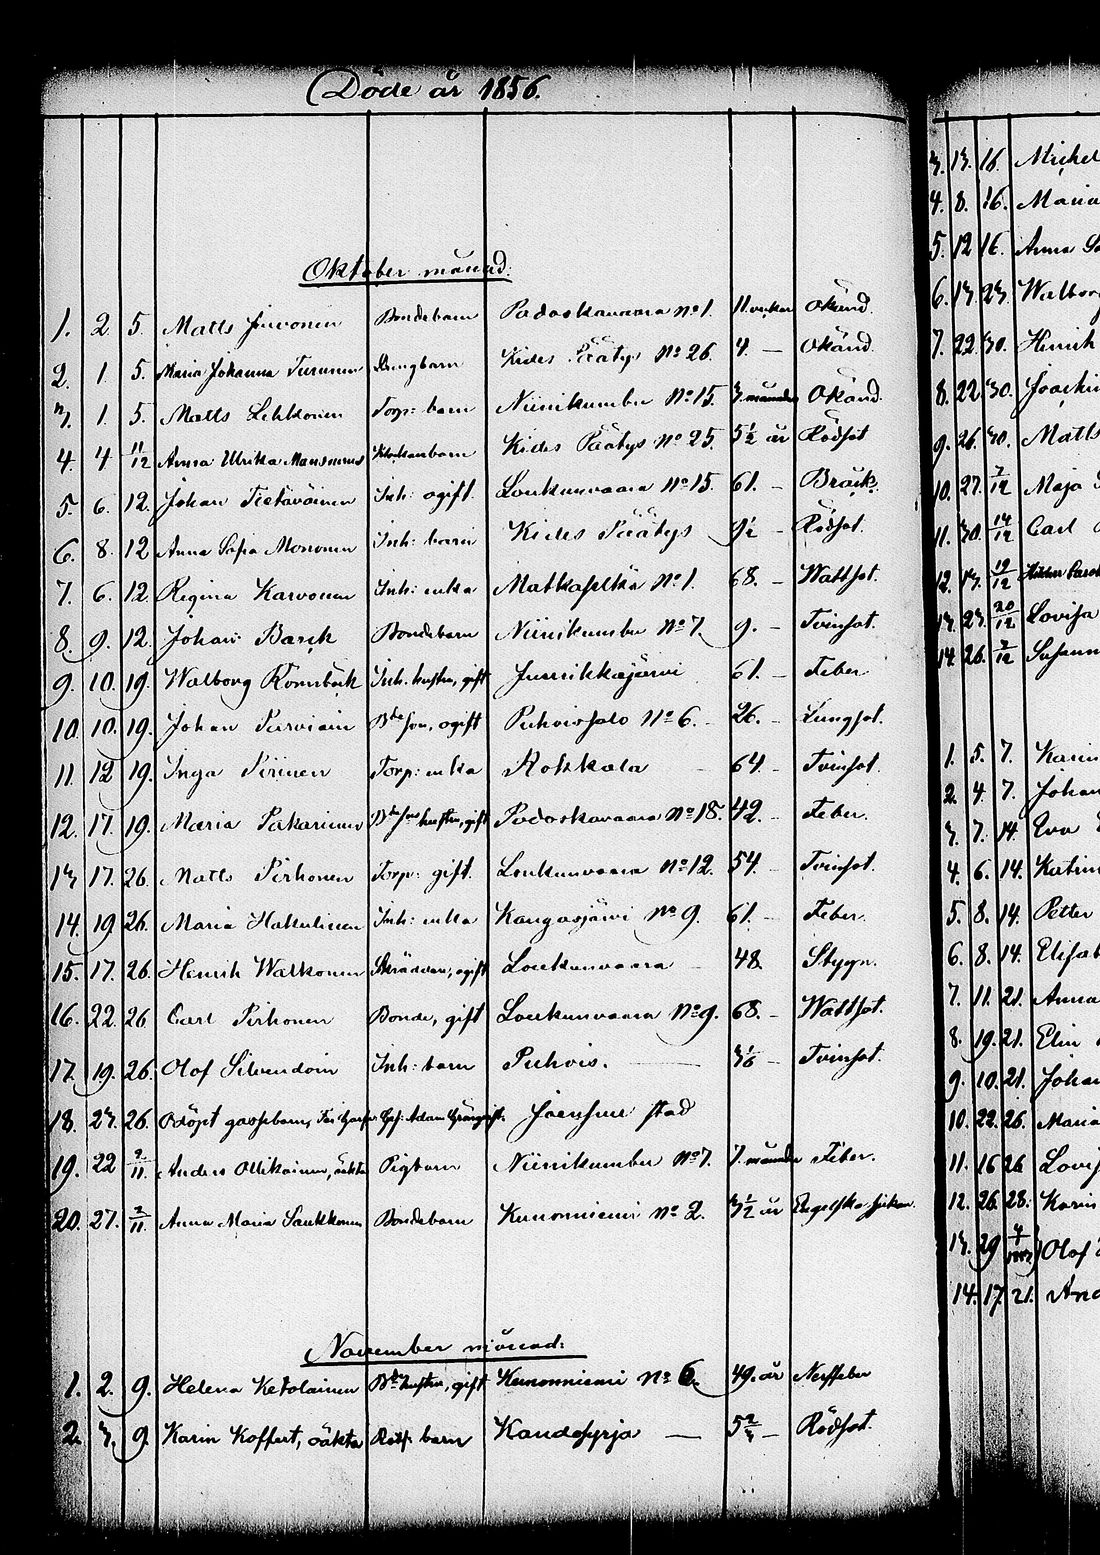 Döde år 1856.
Oktober månad.
1. 2. 5. Matts Juvonen Bondebarn Podoskavaara No 1. 11. veckor Okänd.
2. 1. 5. Maria Johanna Turunen Drengbarn Kides Päätys No 26. 4. — Okänd.
3. 1. 5. Matts Lehikonen Torp: barn Niinikumbu No 15. 3. månader Okänd.
4. 4. 11/12 Anna Ulrika Klockarebarn Kides Päätys No 25. 5 1/2 år Rödsot.
5. 6. 12. Johan Tietäväinen Inh: ogift. Loukunvaara No 15. 61. — Bråck.
6. 8. 12 Anna Sofia Mononen Inh: barn Kides Päätys 9 1/2 — Rödsot.
7. 6. 12. Regina Karvonen Inh: enka Matkaselkä No 1. 68. — Wattsot.
8. 9. 12. Johan Barck Bondebarn Niinikumbu No 7. 9. — Tvinsot.
9. 10. 19. Walborg Rönnbäck Inh: hustru, gift Juurikkajärvi 61. — Feber.
10. 10. 19. Johan Parviain Bde son, ogift Puhoissalo No 6. 26. — Lungsot.
11. 12 19. Inga Pirinen Torp: enka Rokkala — 64. — Tvinsot.
12. 17. 19. Maria Pakarinen Bde sons hustru, gift Podoskavaara No 18. 42. — Feber.
13 17. 26. Matts Pirhonen Torp: gift. Loukunvaara No 12. 54. — Tvinsot.
14. 19. 26. Maria Hakulinen Inh: enka Kangasjärvi No 9. 61. — Feber.
15. 17. 26. Henrik Walkonen Skräddare, ogift Loukunvaara — 48. Stygn.
16. 22. 26 Carl Pirhonen Bonde, gift Loukunvaara No 9. 68. — Wattsot.
17. 19. 26. Olof Silvendoin Inh: barn Puhois. — 3/6 — Tvinsot.
18. 23. 26. Odöpt gossebarn, Adam Joensuu stad
19. 22 2/11. Anders Ollikainen, oäkta Pigbarn Niinikumbu No 7. 7. månader Feber.
20. 27. 2/11. Anna Maria Saukkonen Bondebarn Kunonniemi No 2. 3 1/2 år Engelska sjukan.
November månad:
1. 2. 9. Helena Ketolainen Bde hustru, gift Kunonniemi No 6. 49. år Nerffeber
2. 3. 9. Karin Koffert, oäkta barn Kandosyrja — 5 2/3 — Rödsot.
3. 13. 16. Michel
4. 8. 16. Maria
5. 12 16. Anna
6. 13. 23. Walborg
7. 22. 30. Henrik
8. 22 30. Joachim
9. 26. 30. Matts
10. 27. 7/12 Maja
11. 30. 14/12 Carl
12. 13. 19/12
13. 23. 20/12 Lovisa
14. 26. 7/12 Susanna
1. 5. 7. Karin
2. 4. 7. Johan
3. 7. 14. Eva
4. 6. 14. Katrina
5. 8. 14. Petter
6. 8. 14. Elisab
7. 11. 21. Anna
8. 19. 21. Elin
9. 10. 21. Johan
10. 22. 26. Maria
11. 16 26 Lovisa
12. 26. 28. Karin
13. 29 Olof
14. 17. 21. And